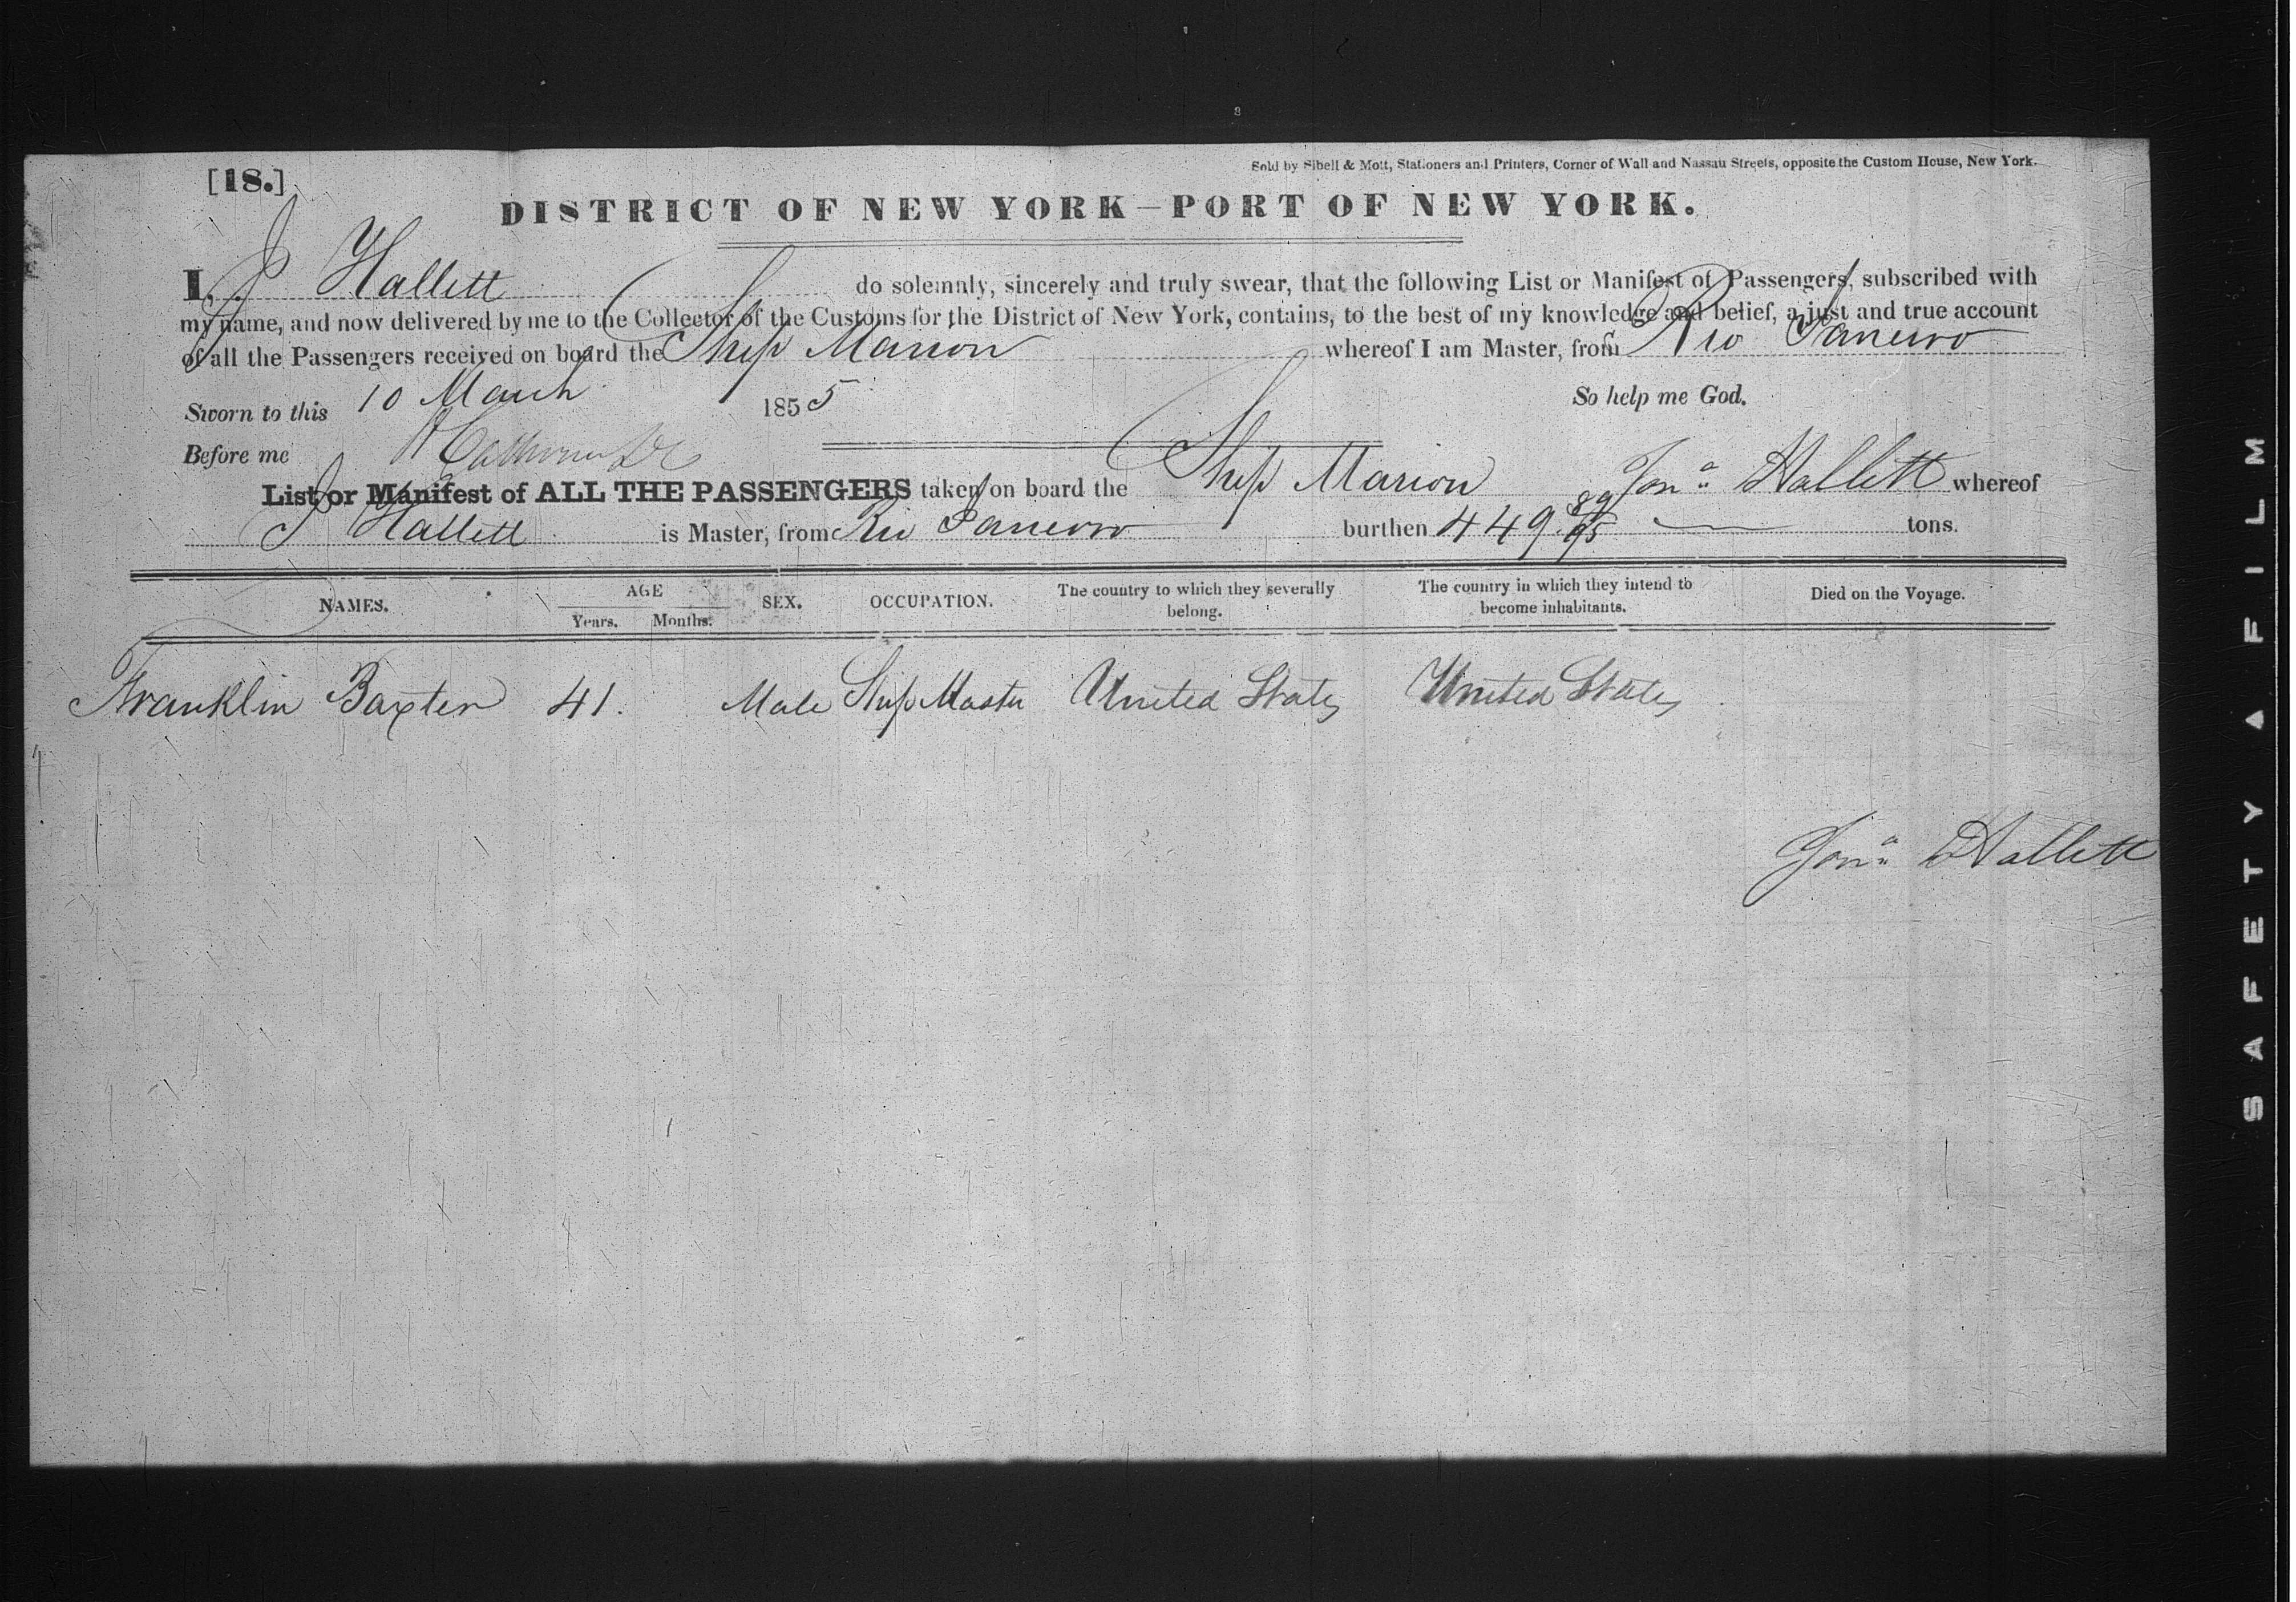 [18.]
Sold by Sibell & Mott, Stationers and Printers, Corner of Wall and Nassau Streets, opposite the Custom House, New York.
DISTRICT OF NEW YORK—PORT OF NEW YORK.
I, J Hallett do solemnly, sincerely and truly swear, that the following List or Manifest of Passengers, subscribed with
my name, and now delivered by me to the Collector of the Customs for the District of New York, contains, to the best of my knowledge and belief, a just and true account
of all the Passengers received on board the Ship Marion whereof I am Master, from Rio Janeiro
Sworn to this 10 March 1855 So help me God.
Before me
List or Manifest of ALL THE PASSENGERS taken on board the Ship Marion Jona Hallett whereof
J Hallett is Master, from Rio Janeiro burthen 449 89/95 tons.
NAMES. AGE Years. Months. SEX. OCCUPATION. The country to which they severally belong. The country in which they intend to become inhabitants. Died on the Voyage.
Franklin Baxter 41. Male Ship Master United States United States
Jona Hallett
SAFETY A FILM